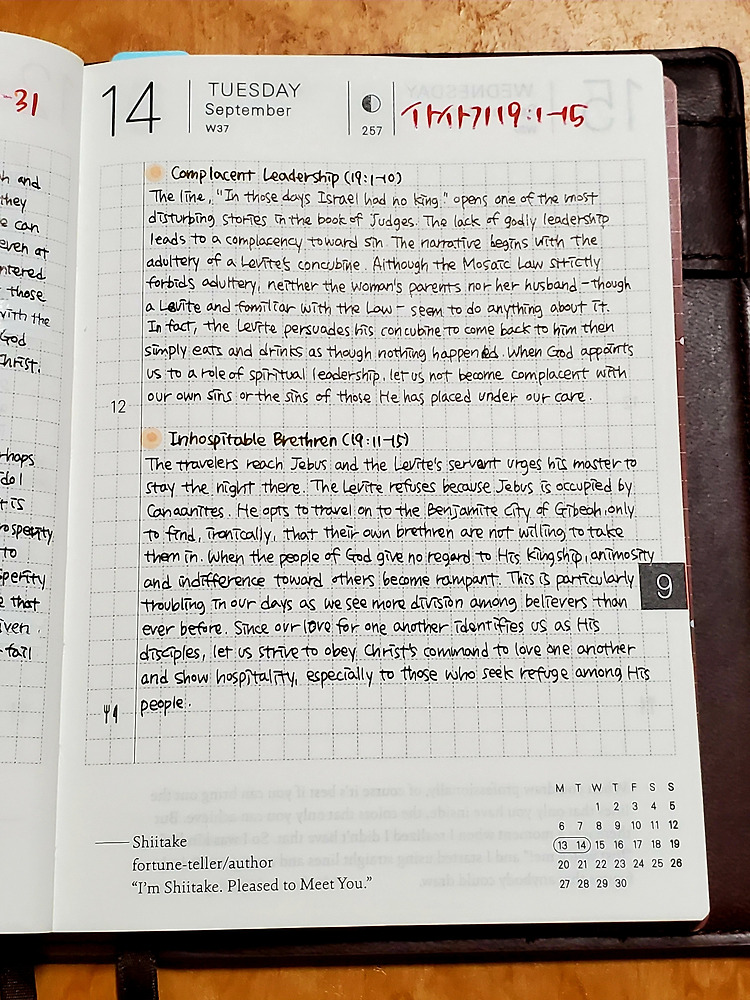 -31
h and
they
e can
even at
ntered
those
with the
God
Christ.
rhaps
idol
t is
rosperity
to
sperity
e that
iven.
fail
14
TUESDAY
September
W37
257
사사기 19:1-15
Complacent Leadership (19:1-10)
The line, "In those days Israel had no king." opens one of the most
disturbing stories in the book of Judges. The lack of godly leadership
leads to a complacency toward sin. The narrative begins with the
adultery of a Levite's concubine. Although the Mosaic Law strictly
forbids adultery, neither the woman's parents nor her husband - though
a Levite and familiar with the Law - seem to do anything about it.
In fact, the Levite persuades his concubine to come back to him then
simply eats and drinks as though nothing happened. When God appoints
us to a role of spiritual leadership, let us not become complacent with
our own sins or the sins of those He has placed under our care.
12
Inhospitable Brethren (19:11-15)
The travelers reach Jebus and the Levite's servant urges his master to
stay the night there. The Levite refuses because Jebus is occupied by
Canaanites. He opts to travel on to the Benjamite city of Gibeah, only
to find, ironically, that their own brethren are not willing to take
them in. When the people of God give no regard to His kingship, animosity
and indifference toward others become rampant. This is particularly
9
troubling in our days as we see more division among believers than
ever before. Since our love for one another identifies us as His
disciples, let us strive to obey Christ's command to love one another
and show hospitality, especially to those who seek refuge among His
people.
M T W T F S S
1 2 3 4 5
6 7 8 9 10 11 12
13 14 15 16 17 18 19
20 21 22 23 24 25 26
27 28 29 30
— Shiitake
fortune-teller/author
"I'm Shiitake. Pleased to Meet You."